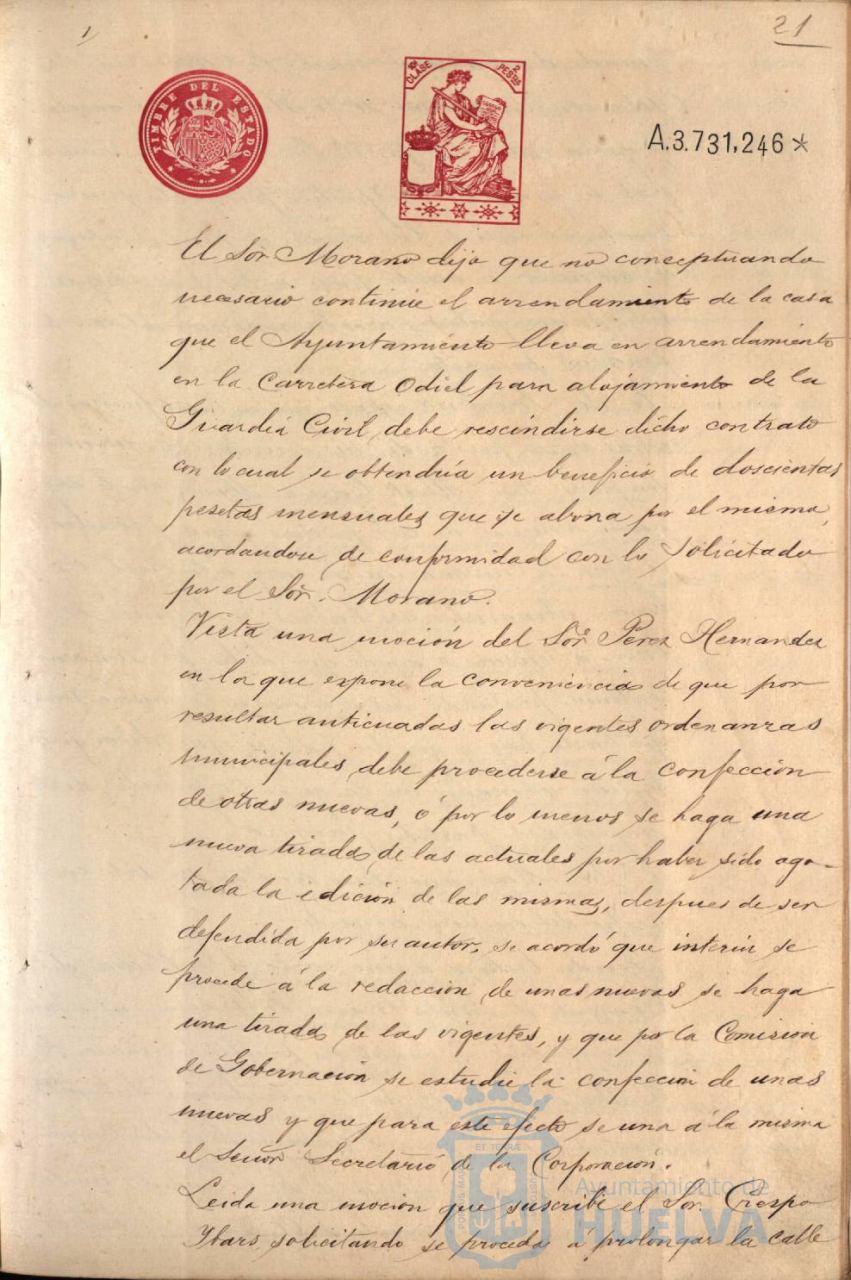 21
TIMBRE DEL ESTADO
10ª CLASE 2 PESTAS
A.3.731,246*
El Sor Morano dijo que no conceptuando
necesario continúe el arrendamiento de la casa
que el Ayuntamiento lleva en arrendamiento
en la Carretera Odiel para alojamiento de la
Guardia Civil, debe rescindirse dicho contrato
con lo cual se obtendría un beneficio de doscientas
pesetas mensuales que se abona por el mismo,
acordandose de conformidad con lo solicitado
por el Sor. Morano.
Vista una moción del Sor. Perez Hernandez
en la que expone la conveniencia de que por
resultar anticuadas las vigentes ordenanzas
municipales, debe procederse á la confección
de otras nuevas, ó por lo menos se haga una
nueva tirada de las actuales por haber sido ago-
tada la edición de las mismas, despues de ser
defendida por su autor, se acordó que interin se
procede á la redacción de unas nuevas se haga
una tirada de las vigentes, y que por la Comision
de Gobernación se estudie la confección de unas
nuevas y que para este efecto se una á la misma
el Señor Secretario de la Corporación.
Leida una moción que suscribe el Sor Crespo
Ybars, solicitando se proceda á prolongar la calle
Ayuntamiento de
HUELVA